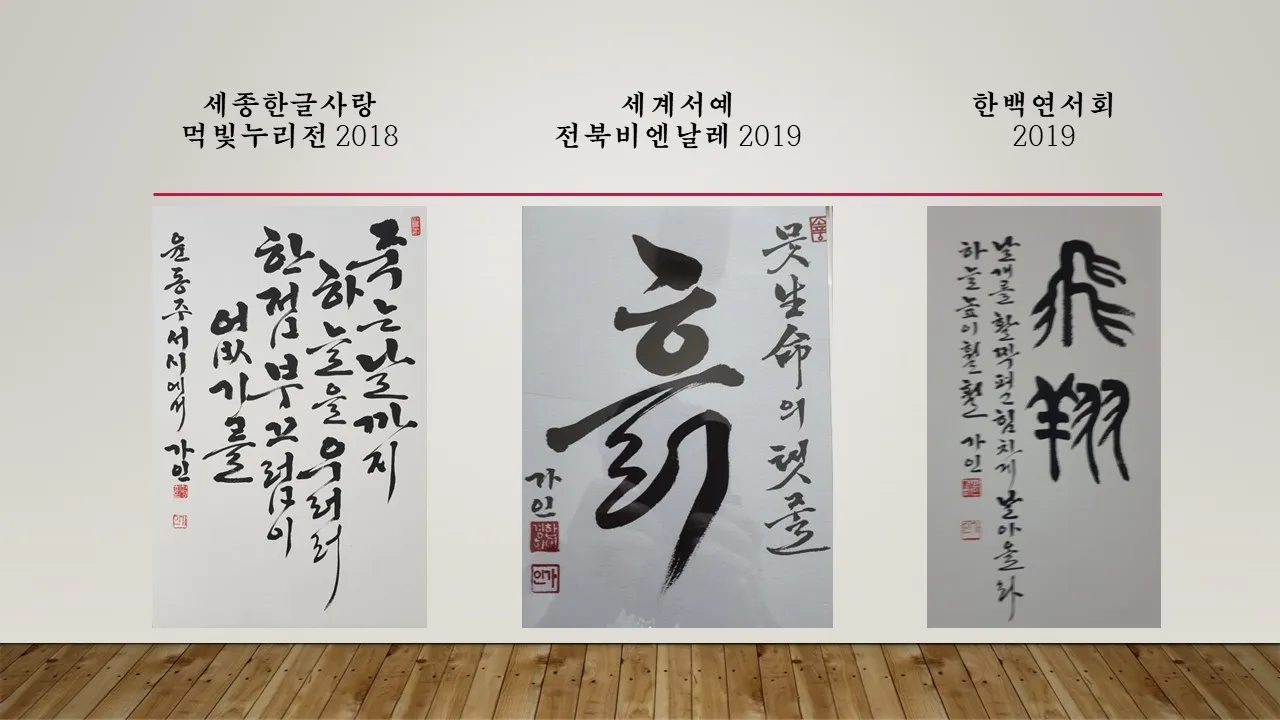 세종한글사랑
먹빛누리전 2018
세계서예
전북비엔날레 2019
한백연서회
2019
죽는날까지
하늘을우러러
한점부끄럼이
없기를
윤동주서시에서 가인
뭇生命의 탯줄
흙
가인
飛翔
날개를 활짝펴고힘차게 날아올라
하늘높이훨훨 가인